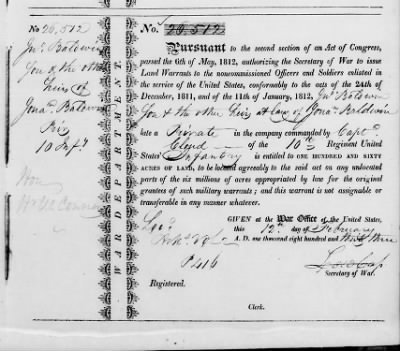 No 20,512
Jno. Baldwin
Son & the other
Heirs of
Jona. Baldwin
Priv
10 Inf.y
WAR DEPARTMENT.
No. 20,512
Pursuant to the second section of an Act of Congress,
passed the 6th of May, 1812, authorizing the Secretary of War to issue
Land Warrants to the noncommissioned Officers and Soldiers enlisted in
the service of the United States, conformably to the acts of the 24th of
December, 1811, and of the 11th of January, 1812, Jno. Baldwin
Son & the other Heirs at Law of Jona. Baldwin
late a Private in the company commanded by Capt.
Cloud of the 10th Regiment United
States' Infantry is entitled to ONE HUNDRED AND SIXTY
ACRES OF LAND, to be located agreeably to the said act on any unlocated
parts of the six millions of acres appropriated by law for the original
grantees of such military warrants; and this warrant is not assignable or
transferable in any manner whatever.
GIVEN at the War Office of the United States,
this 12th day of February
A. D. one thousand eight hundred and thirty three
Lew Cass
Secretary of War.
P 416
Registered.
Clerk.